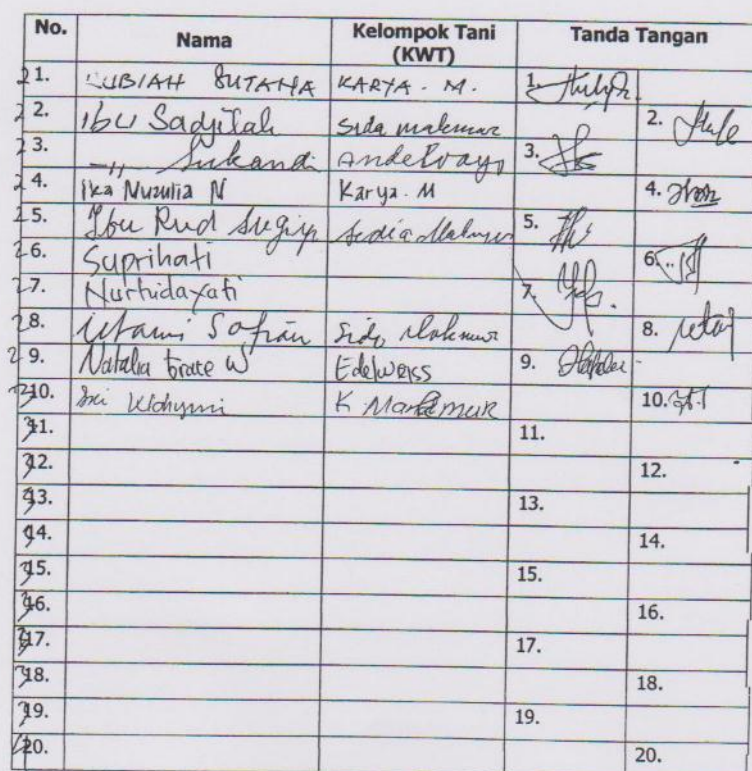 No. Nama Kelompok Tani (KWT) Tanda Tangan
21. RUBIAH SUTAMA KARYA. M. 1.
22. Ibu Sadjilah Sida makmur 2.
23. —„— Sukandi 3.
24. Ika Nuzulia N Karya. M 4.
25. Ibu Rud 5.
26. Suprihati 6.
27. Nurhidayati 7.
28. Utami Sofian Sido Makmur 8.
29. Natalia Grace W Edelweiss 9.
30. Sri Wahyuni K. Makmur 10.
31. 11.
32. 12.
33. 13.
34. 14.
35. 15.
36. 16.
37. 17.
38. 18.
39. 19.
40. 20.